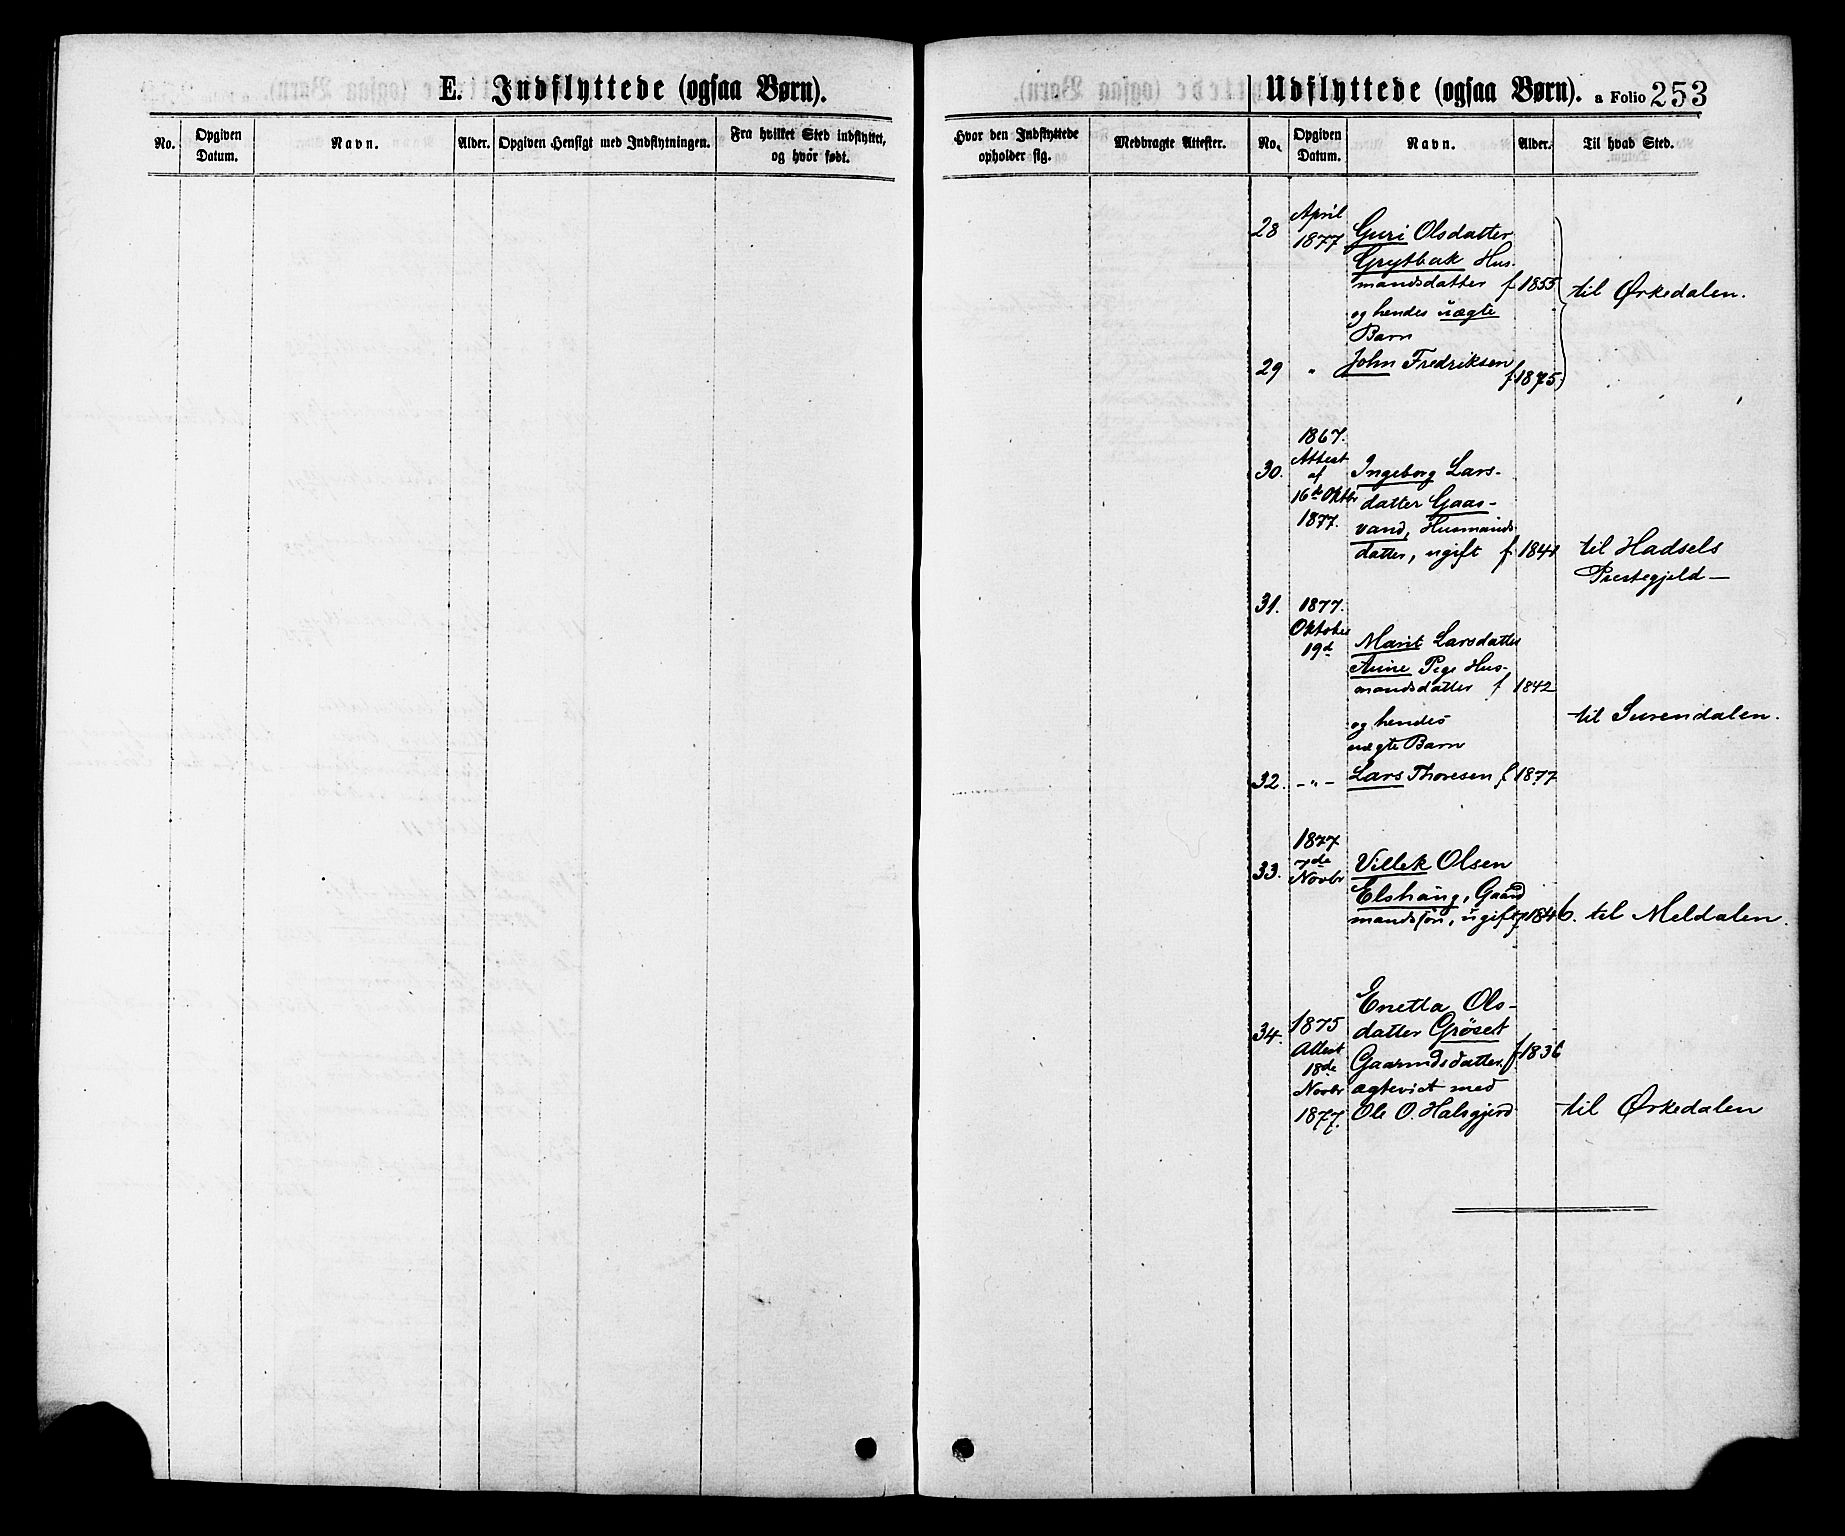 E. Indflyttede (ogsaa Børn).
No.
Opgiven
Datum.
Navn.
Alder.
Opgiven Hensigt med Indflytningen.
Fra hvilket Sted indflyttet,
og hvor født.
Udflyttede (ogsaa Børn). a Folio 253
Hvor den Indflyttede
opholder sig.
Medbragte Attester.
No.
Opgiven
Datum.
Navn.
Alder.
Til hvad Sted.
28 April
1877
Guri Olsdatter
Grytbak Hus-
mandsdatter f 1855
til Ørkedalen.
og hendes uægte
Barn
29 " John Fredriksen
f 1875
1867.
30. Attest
af
16de Oktbr
1877.
Ingeborg Lars-
datter Gaas-
vand, Husmands
datter, ugift f. 1841
til Hadsels
Præstegjeld —
31. 1877.
Oktober
19d
Marit Larsdatter
Aune Pige Hus-
mandsdatter f 1842
og hendes
uægte Barn
til Surendalen.
32. -"- Lars Thoresen f 1877
1877
33. 7de
Novbr
Villek Olsen
Elshaug, Gaard
mandssøn, ugift f 1846. til Meldalen.
34. 1875
Attest
18de
Novbr
1877.
Enetta Ols-
datter Gröset
Gaarmdsdatter f. 1836
ægteviet med
Ole O. Halsgjerd
til Ørkedalen